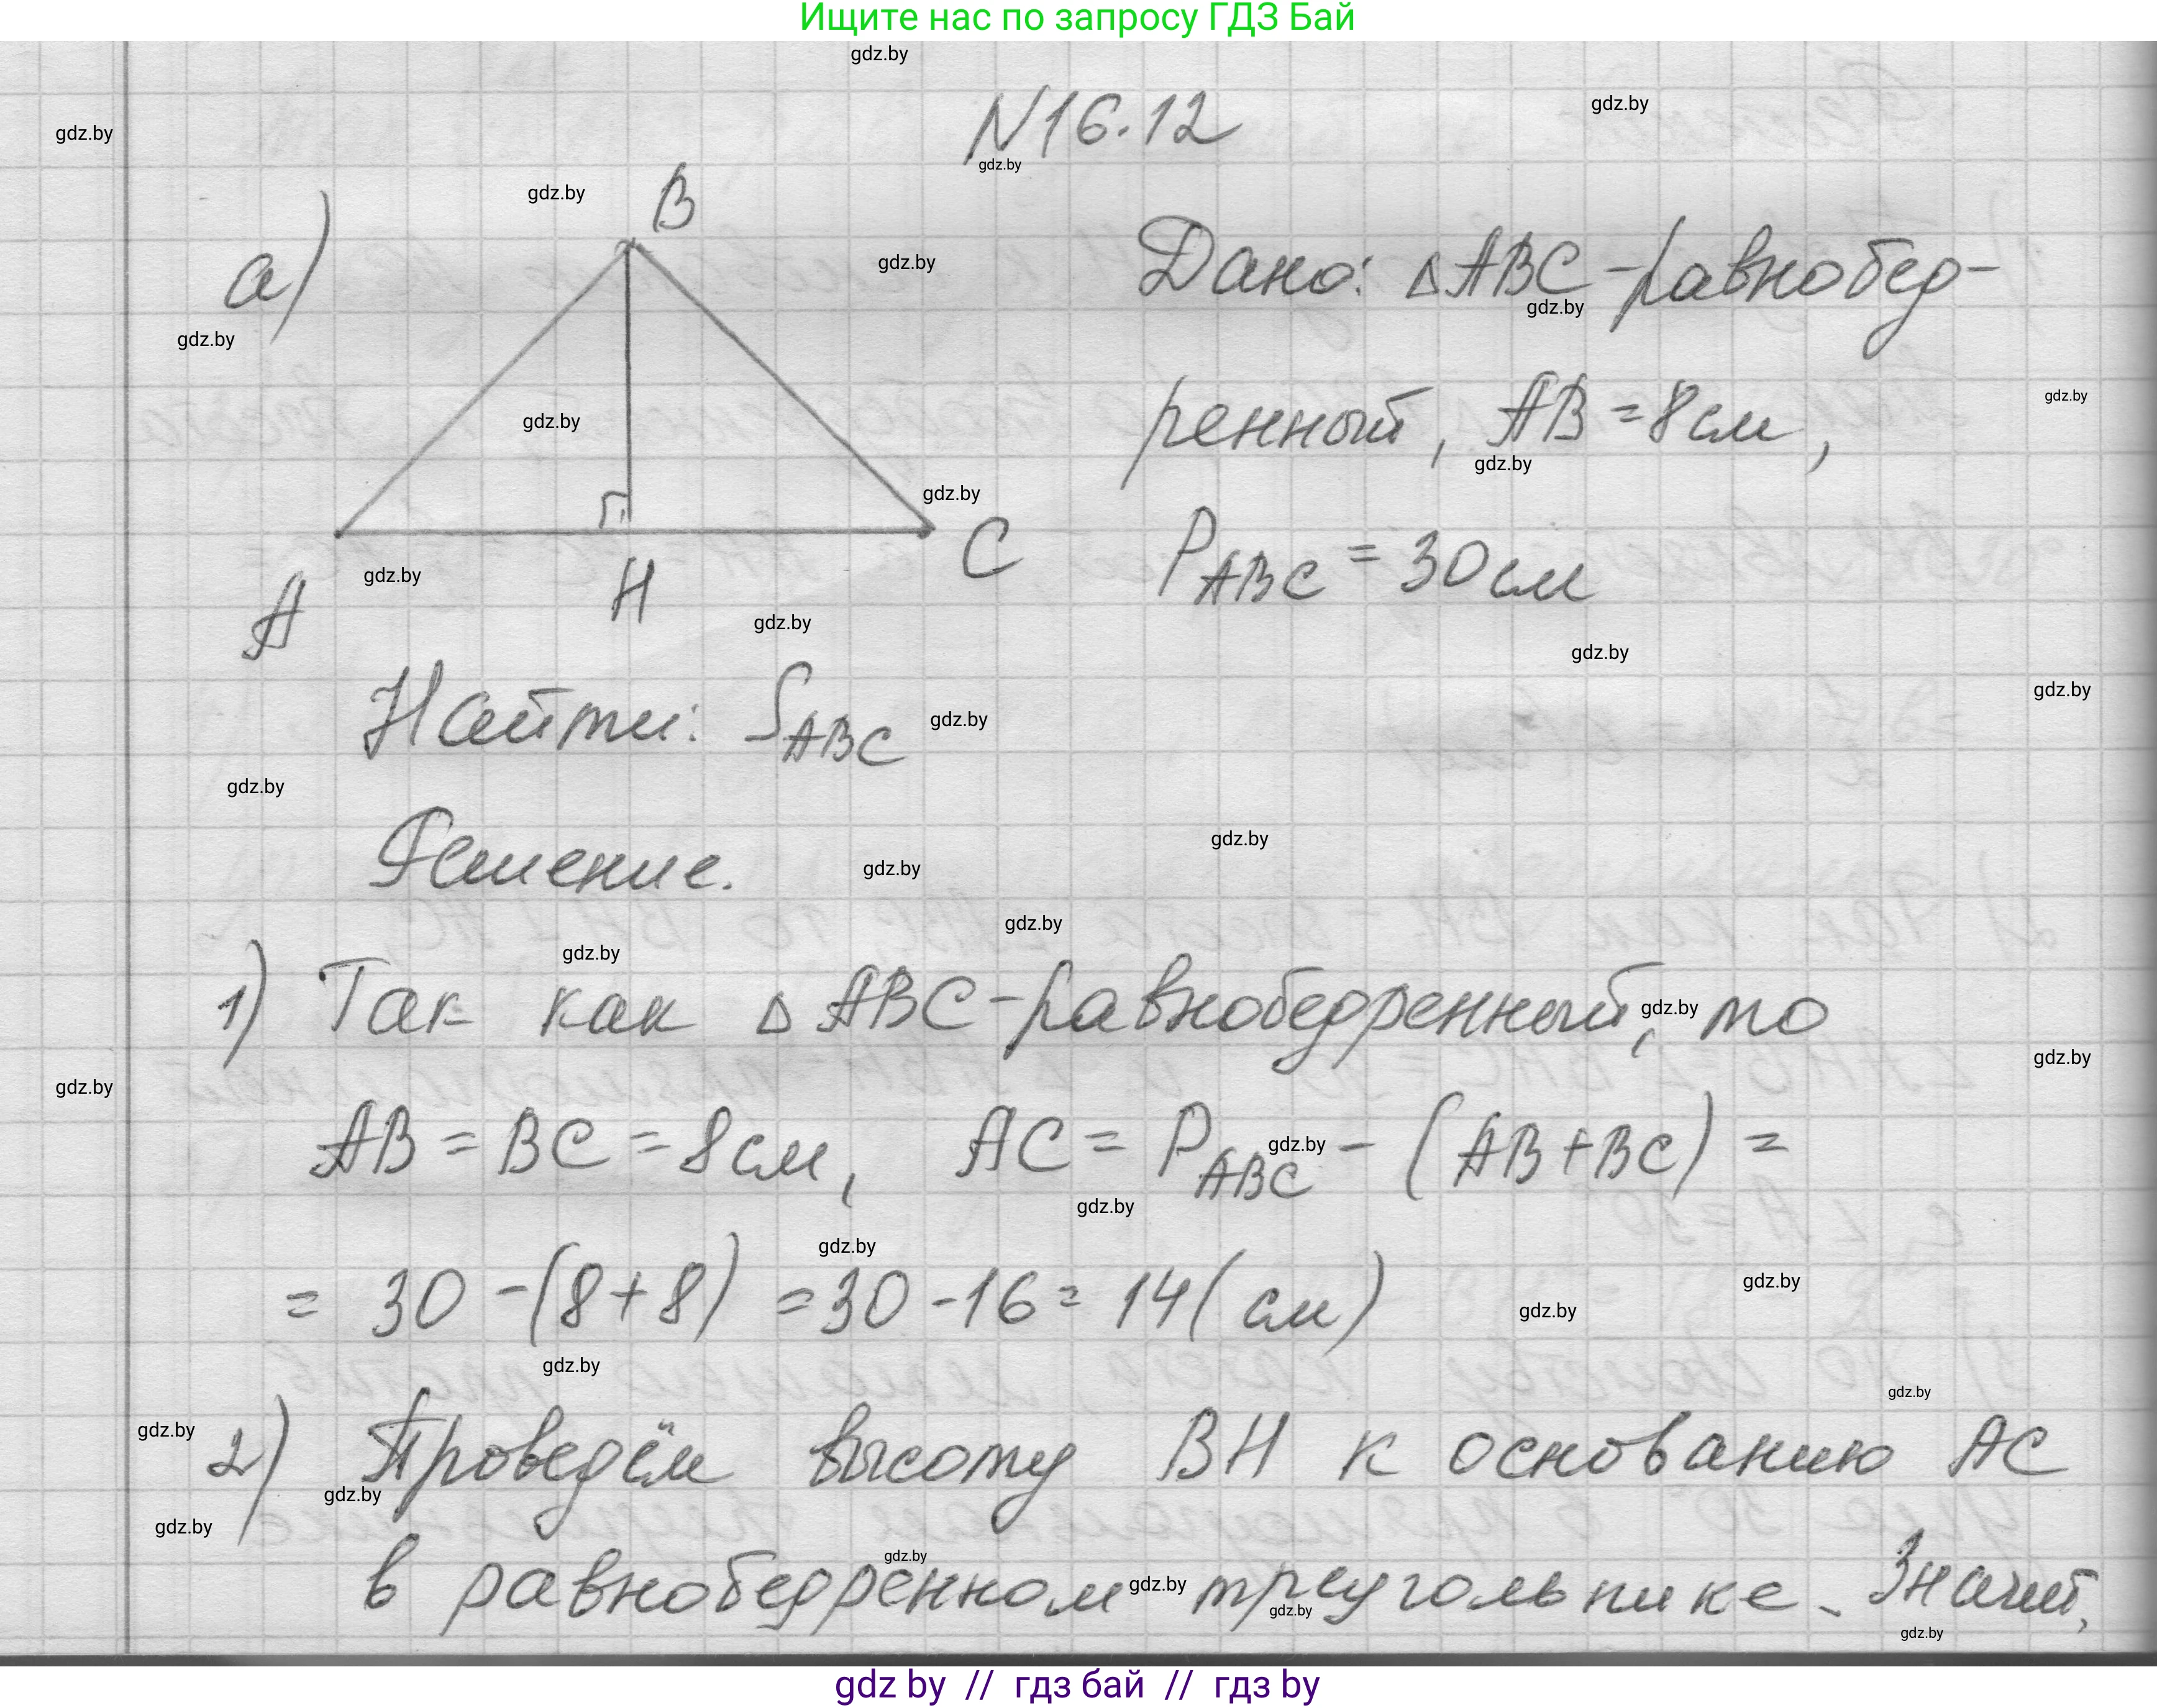 Ищите нас по запросу ГДЗ Бай
gdz.by
N16.12
а)
B
A
H
C
Дано: △ABC-равнобед-
ренный, AB=8см,
P_ABC = 30см
Найти: S_ABC
Решение.
1) Так как △ABC-равнобедренный, то
AB = BC = 8см, AC = P_ABC - (AB+BC) =
= 30 -(8+8) =30 -16= 14( см)
2) Проведём высоту BH к основанию AC
в равнобедренном треугольнике. Значит,
gdz by // гдз бай // гдз by